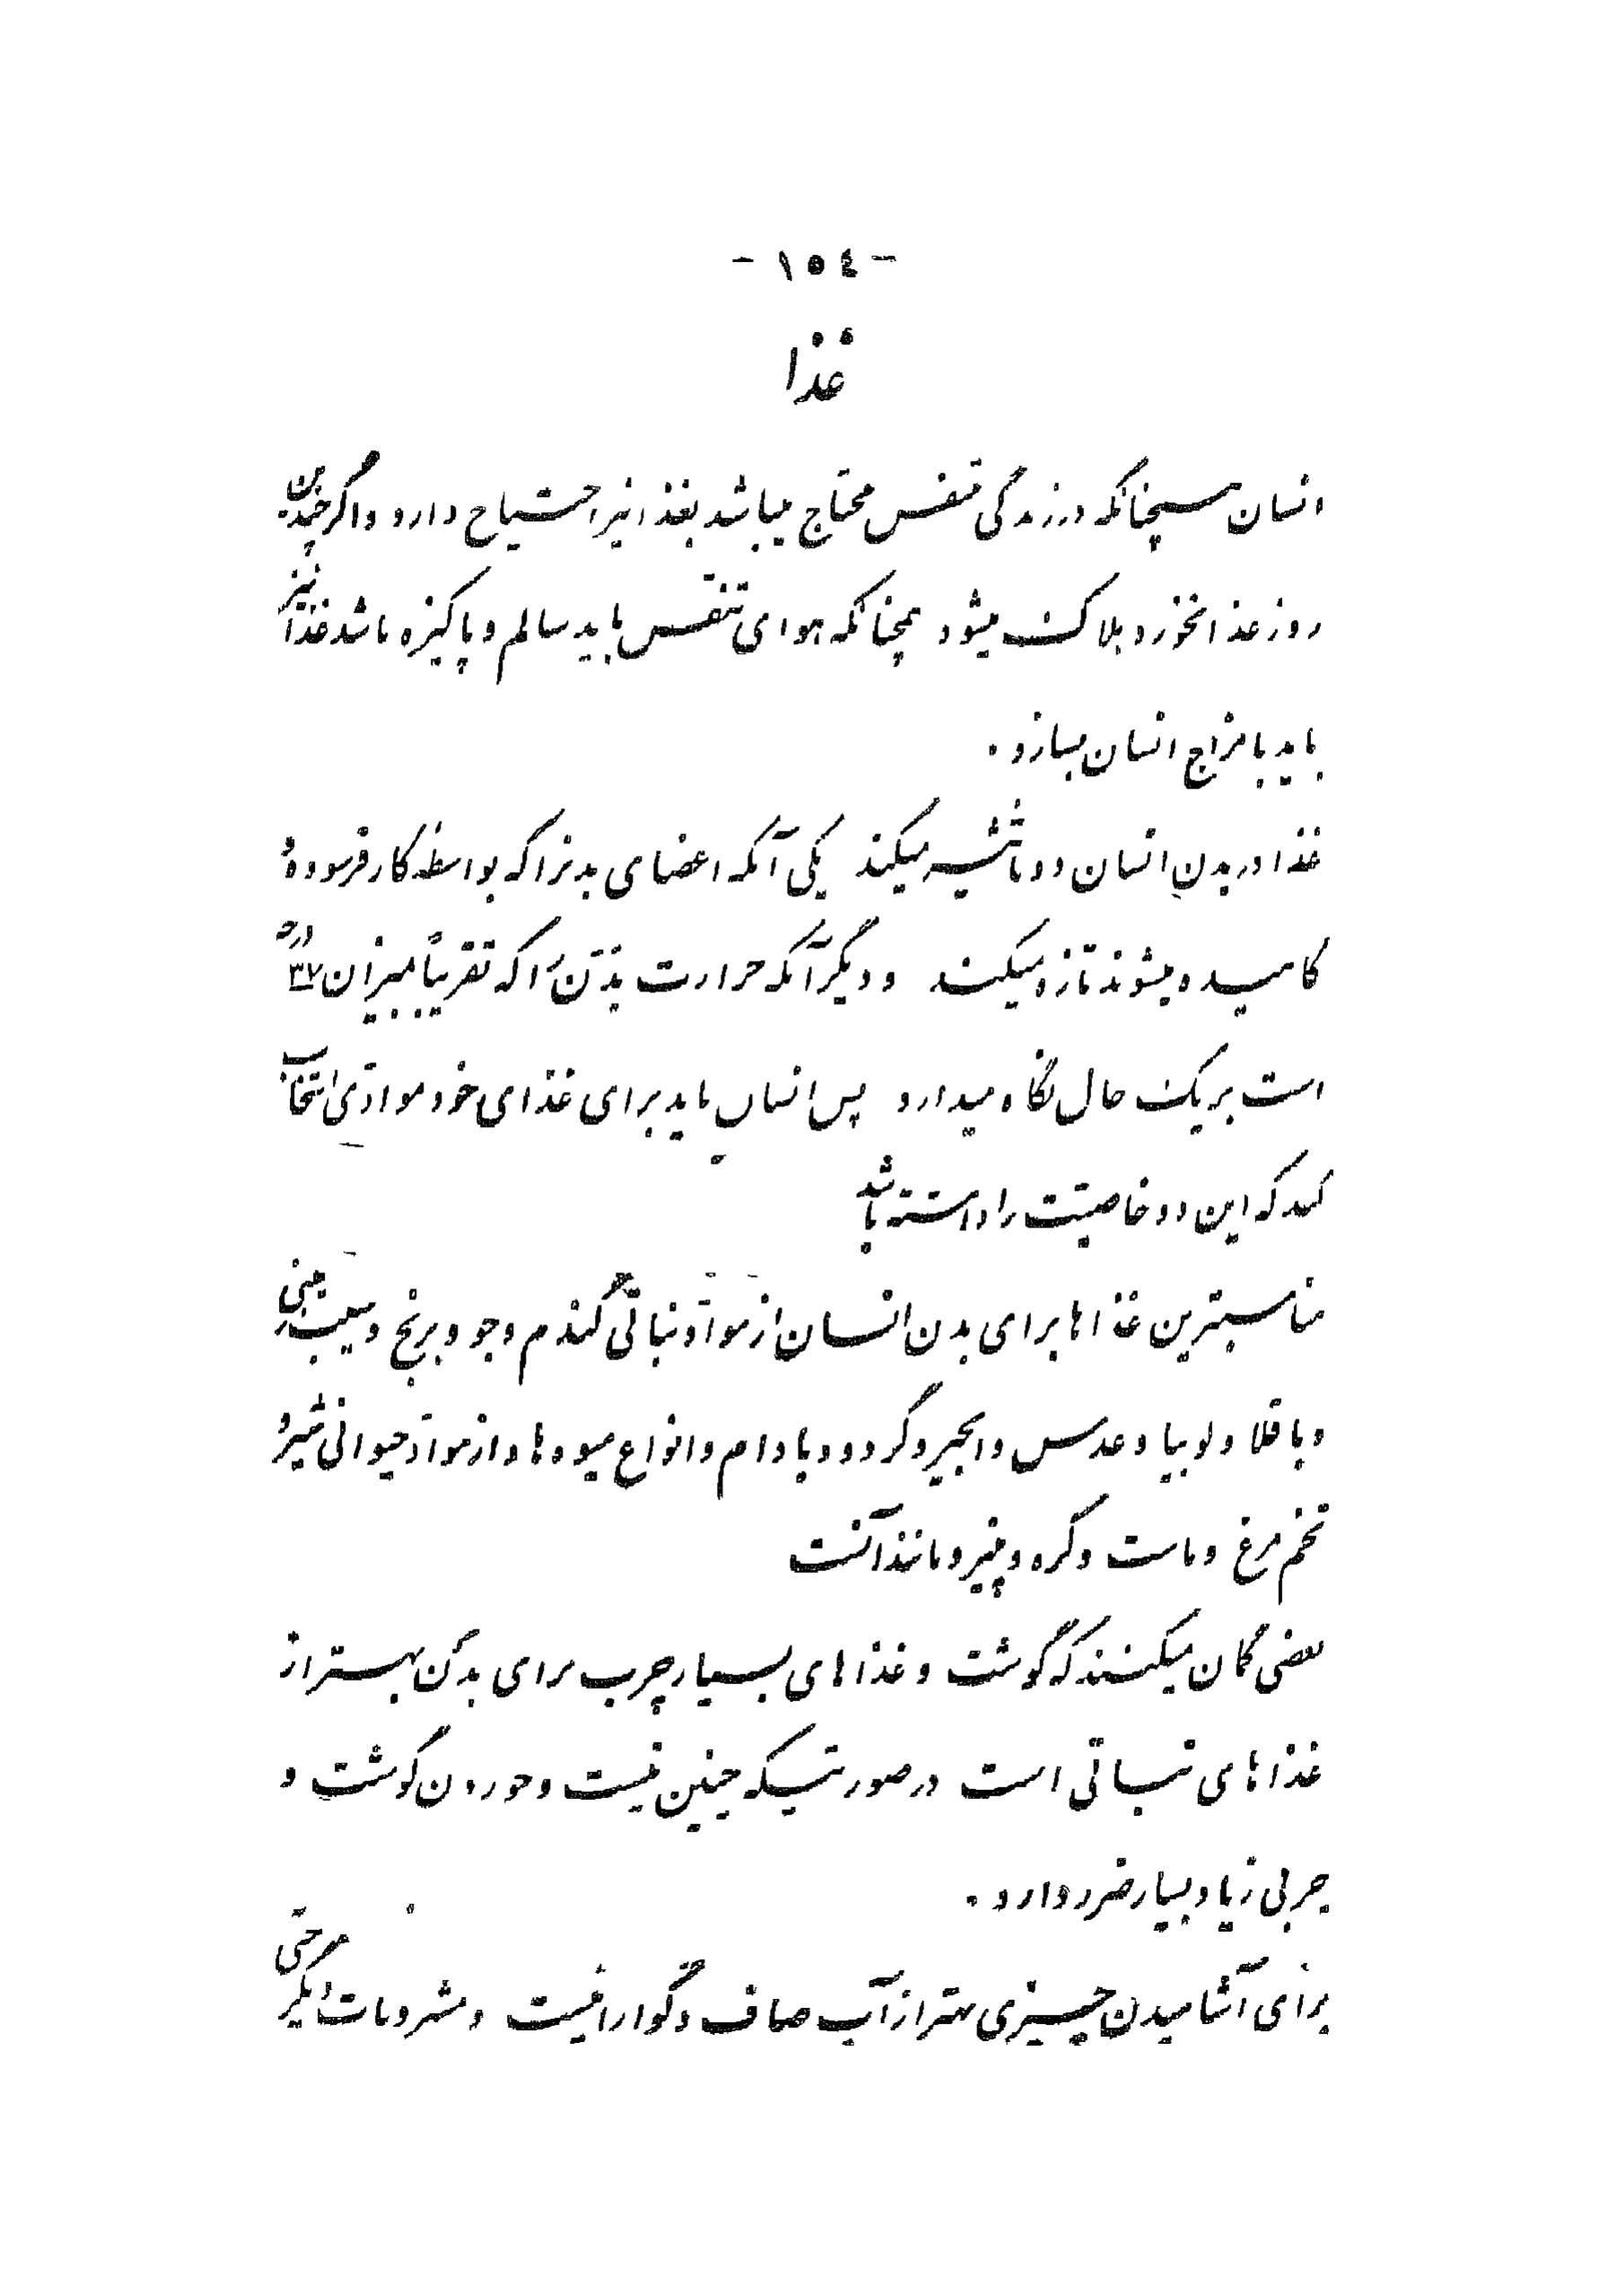 - ۱٥٤ -
غذا
انسان همچنانکه در زندگی بتنفس محتاج میباشد بغذا نیز احتیاج دارد و اگر چندین
روز غذا نخورد هلاک میشود همچنانکه هوای تنفس باید سالم و پاکیزه باشد غذا نیز
باید با مزاج انسان بسازد .
غذا در بدن انسان دو تأثیر میکند یکی آنکه اعضای بدنرا که بواسطهٔ کار فرسوده و
کاهیده میشوند تازه میکند و دیگر آنکه حرارت بدن را که تقریباً بمیزان ۳۷ درجه
است بر یک حال نگاه میدارد پس انسان باید برای غذای خود موادّی انتخاب
کند که این دو خاصیّت را داشته باشد
مناسبترین غذاها برای بدن انسان از موادّ نباتی گندم و جو و برنج و سیب زمینی
و باقلا و لوبیا و عدس و انجیر و گردو و بادام و انواع میوه‌ها و از موادّ حیوانی شیر و
تخم مرغ و ماست و کره و پنیر و مانند آنست
بعضی گمان میکنند که گوشت و غذاهای بسیار چرب برای بدن بهتر از
غذاهای نباتی است در صورتیکه چنین نیست و خوردن گوشت و
چربی زیاد بسیار ضرر دارد .
برای آشامیدن چیزی بهتر از آب صاف و گوارا نیست و مشروبات دیگر هر حتی